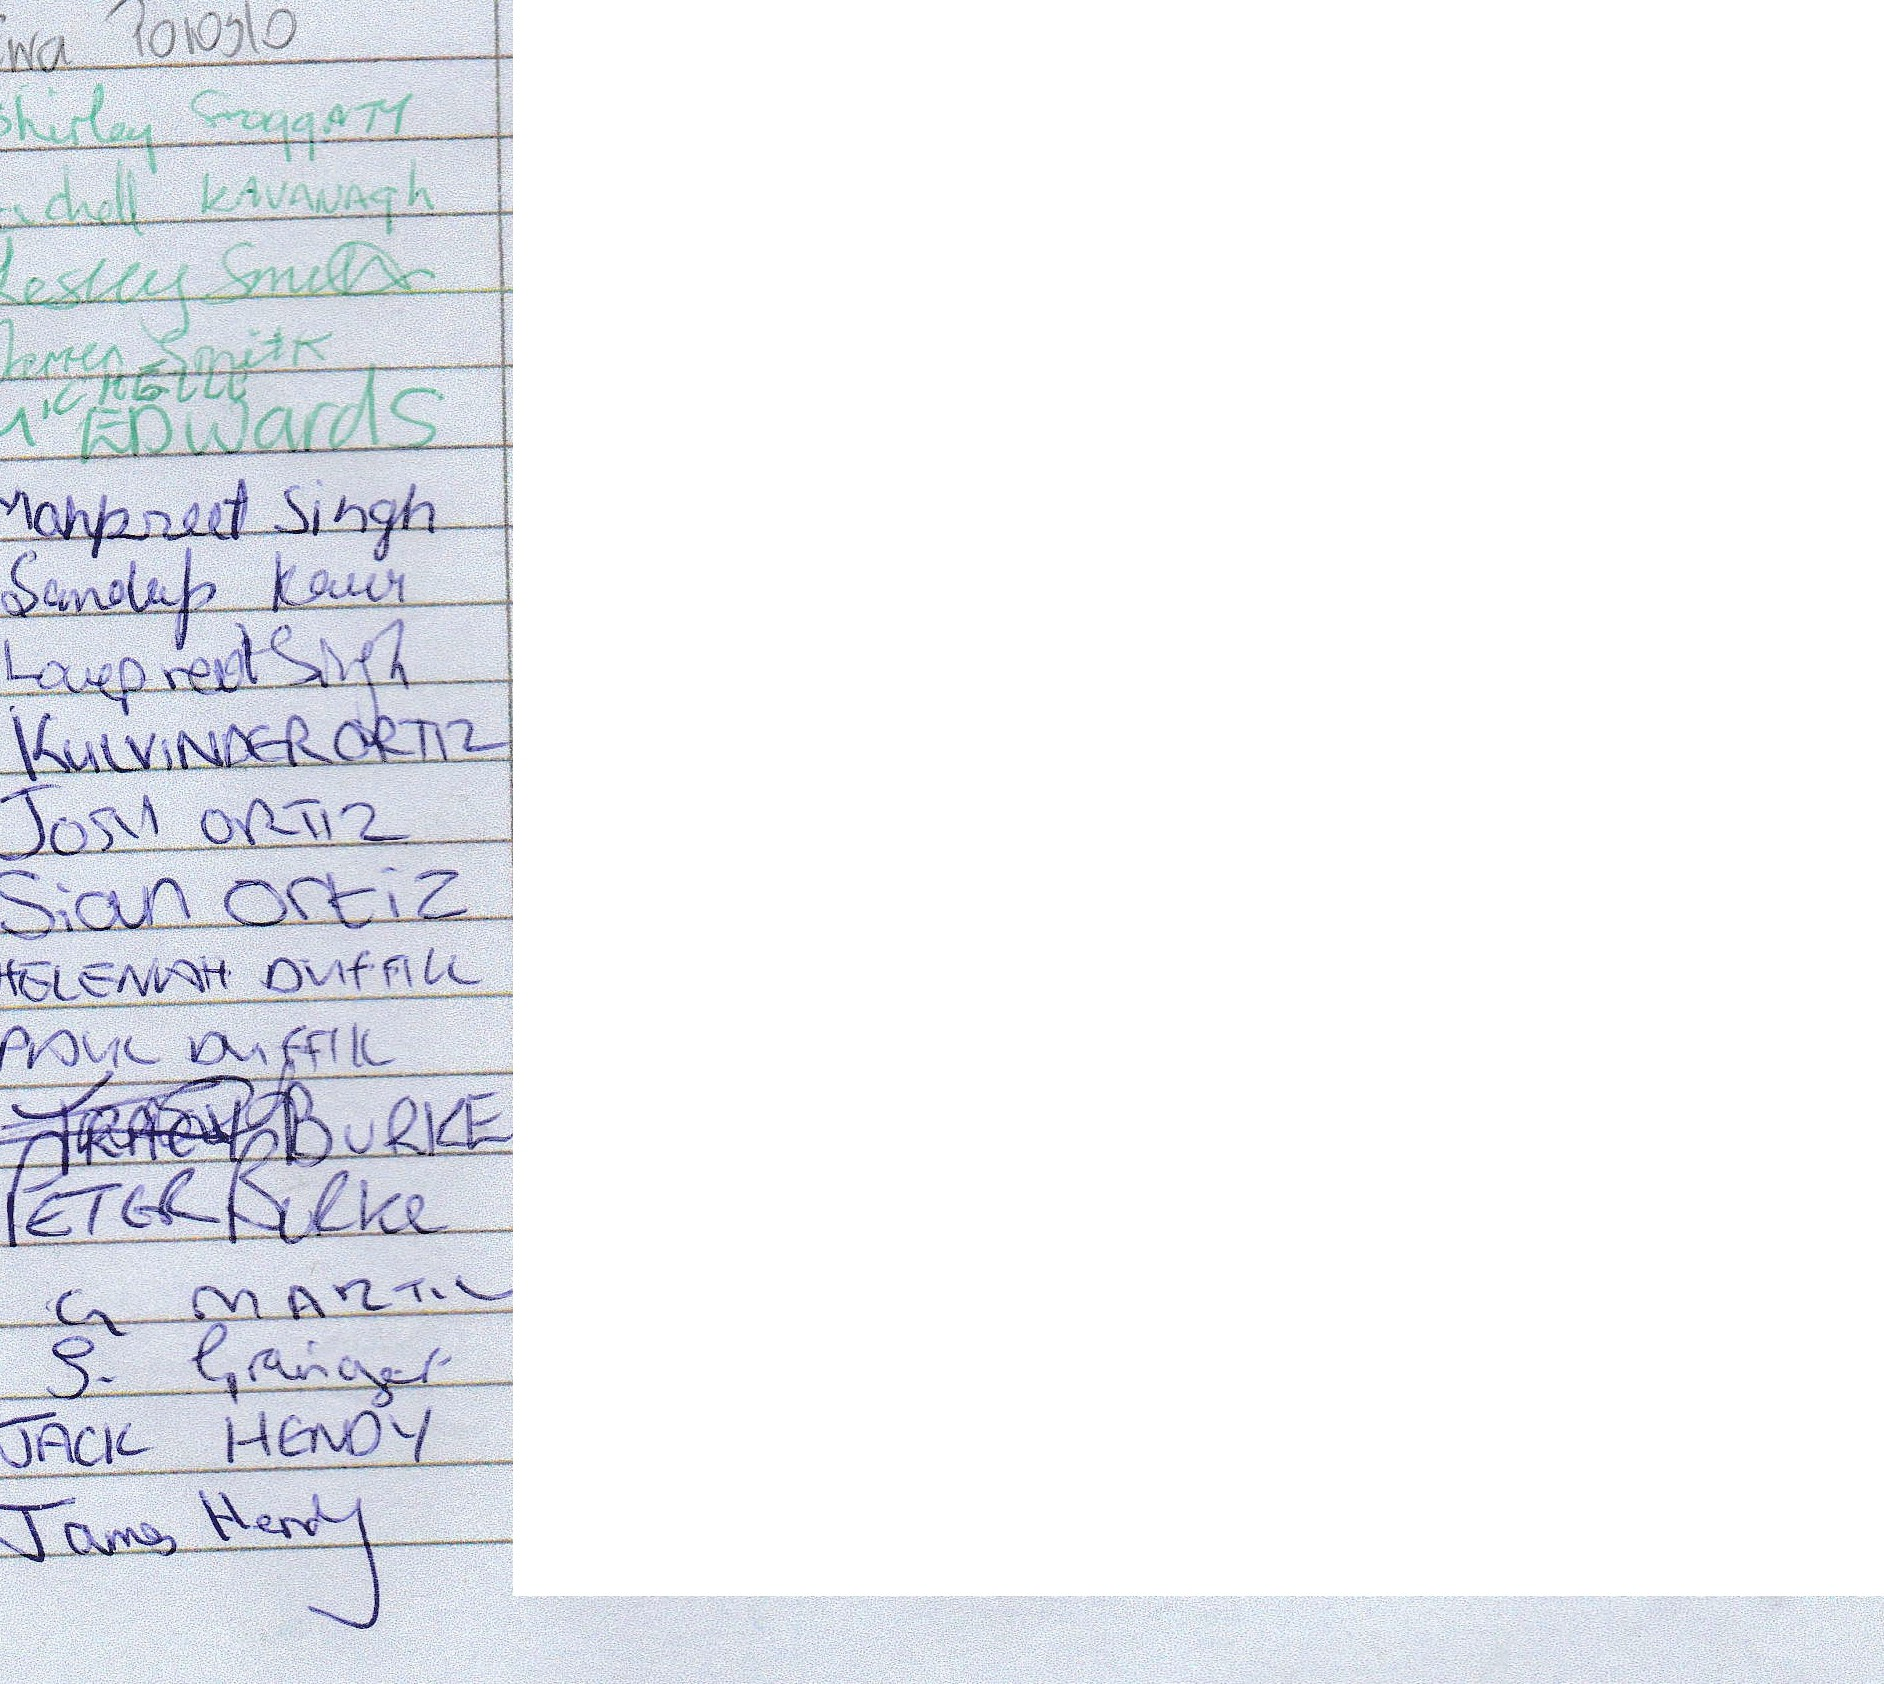 Shirley
chell KAVANAgh
Lesley Smith
Darren Smith
MICHELLE
EDwardS
Manpreet Singh
Sandeep Kaur
Lovepreet Singh
KULVINDER ORTIZ
JOSH ORTIZ
Sian Ortiz
HELENAH DUFFILL
PAUL DUFFILL
TRACY BURKE
PETER BURKe
G MARTIN
S. Grainger
JACK HENDY
James Hendy